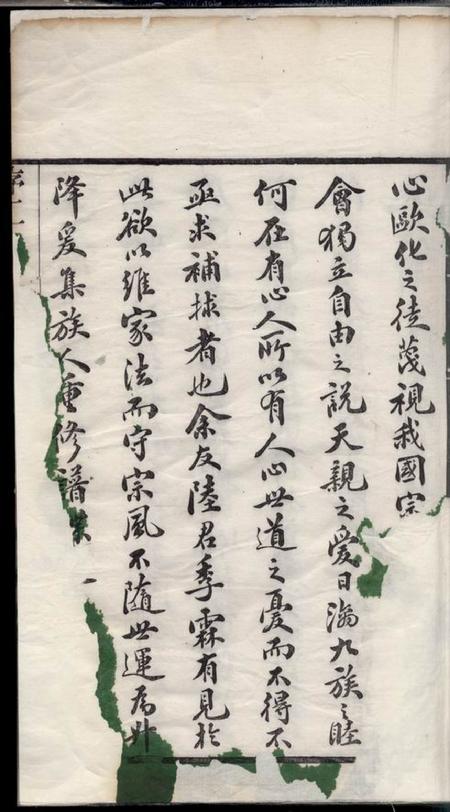 心歐化之徒蔑視我國宗
會獨立自由之說天親之愛日漓九族之睦
何在有心人所以有人心世道之憂而不得不
亟求補捄者也余友陸君季霖有見於
此欲以維家法而守宗風不隨世運為升
降爰集族人重修譜
序